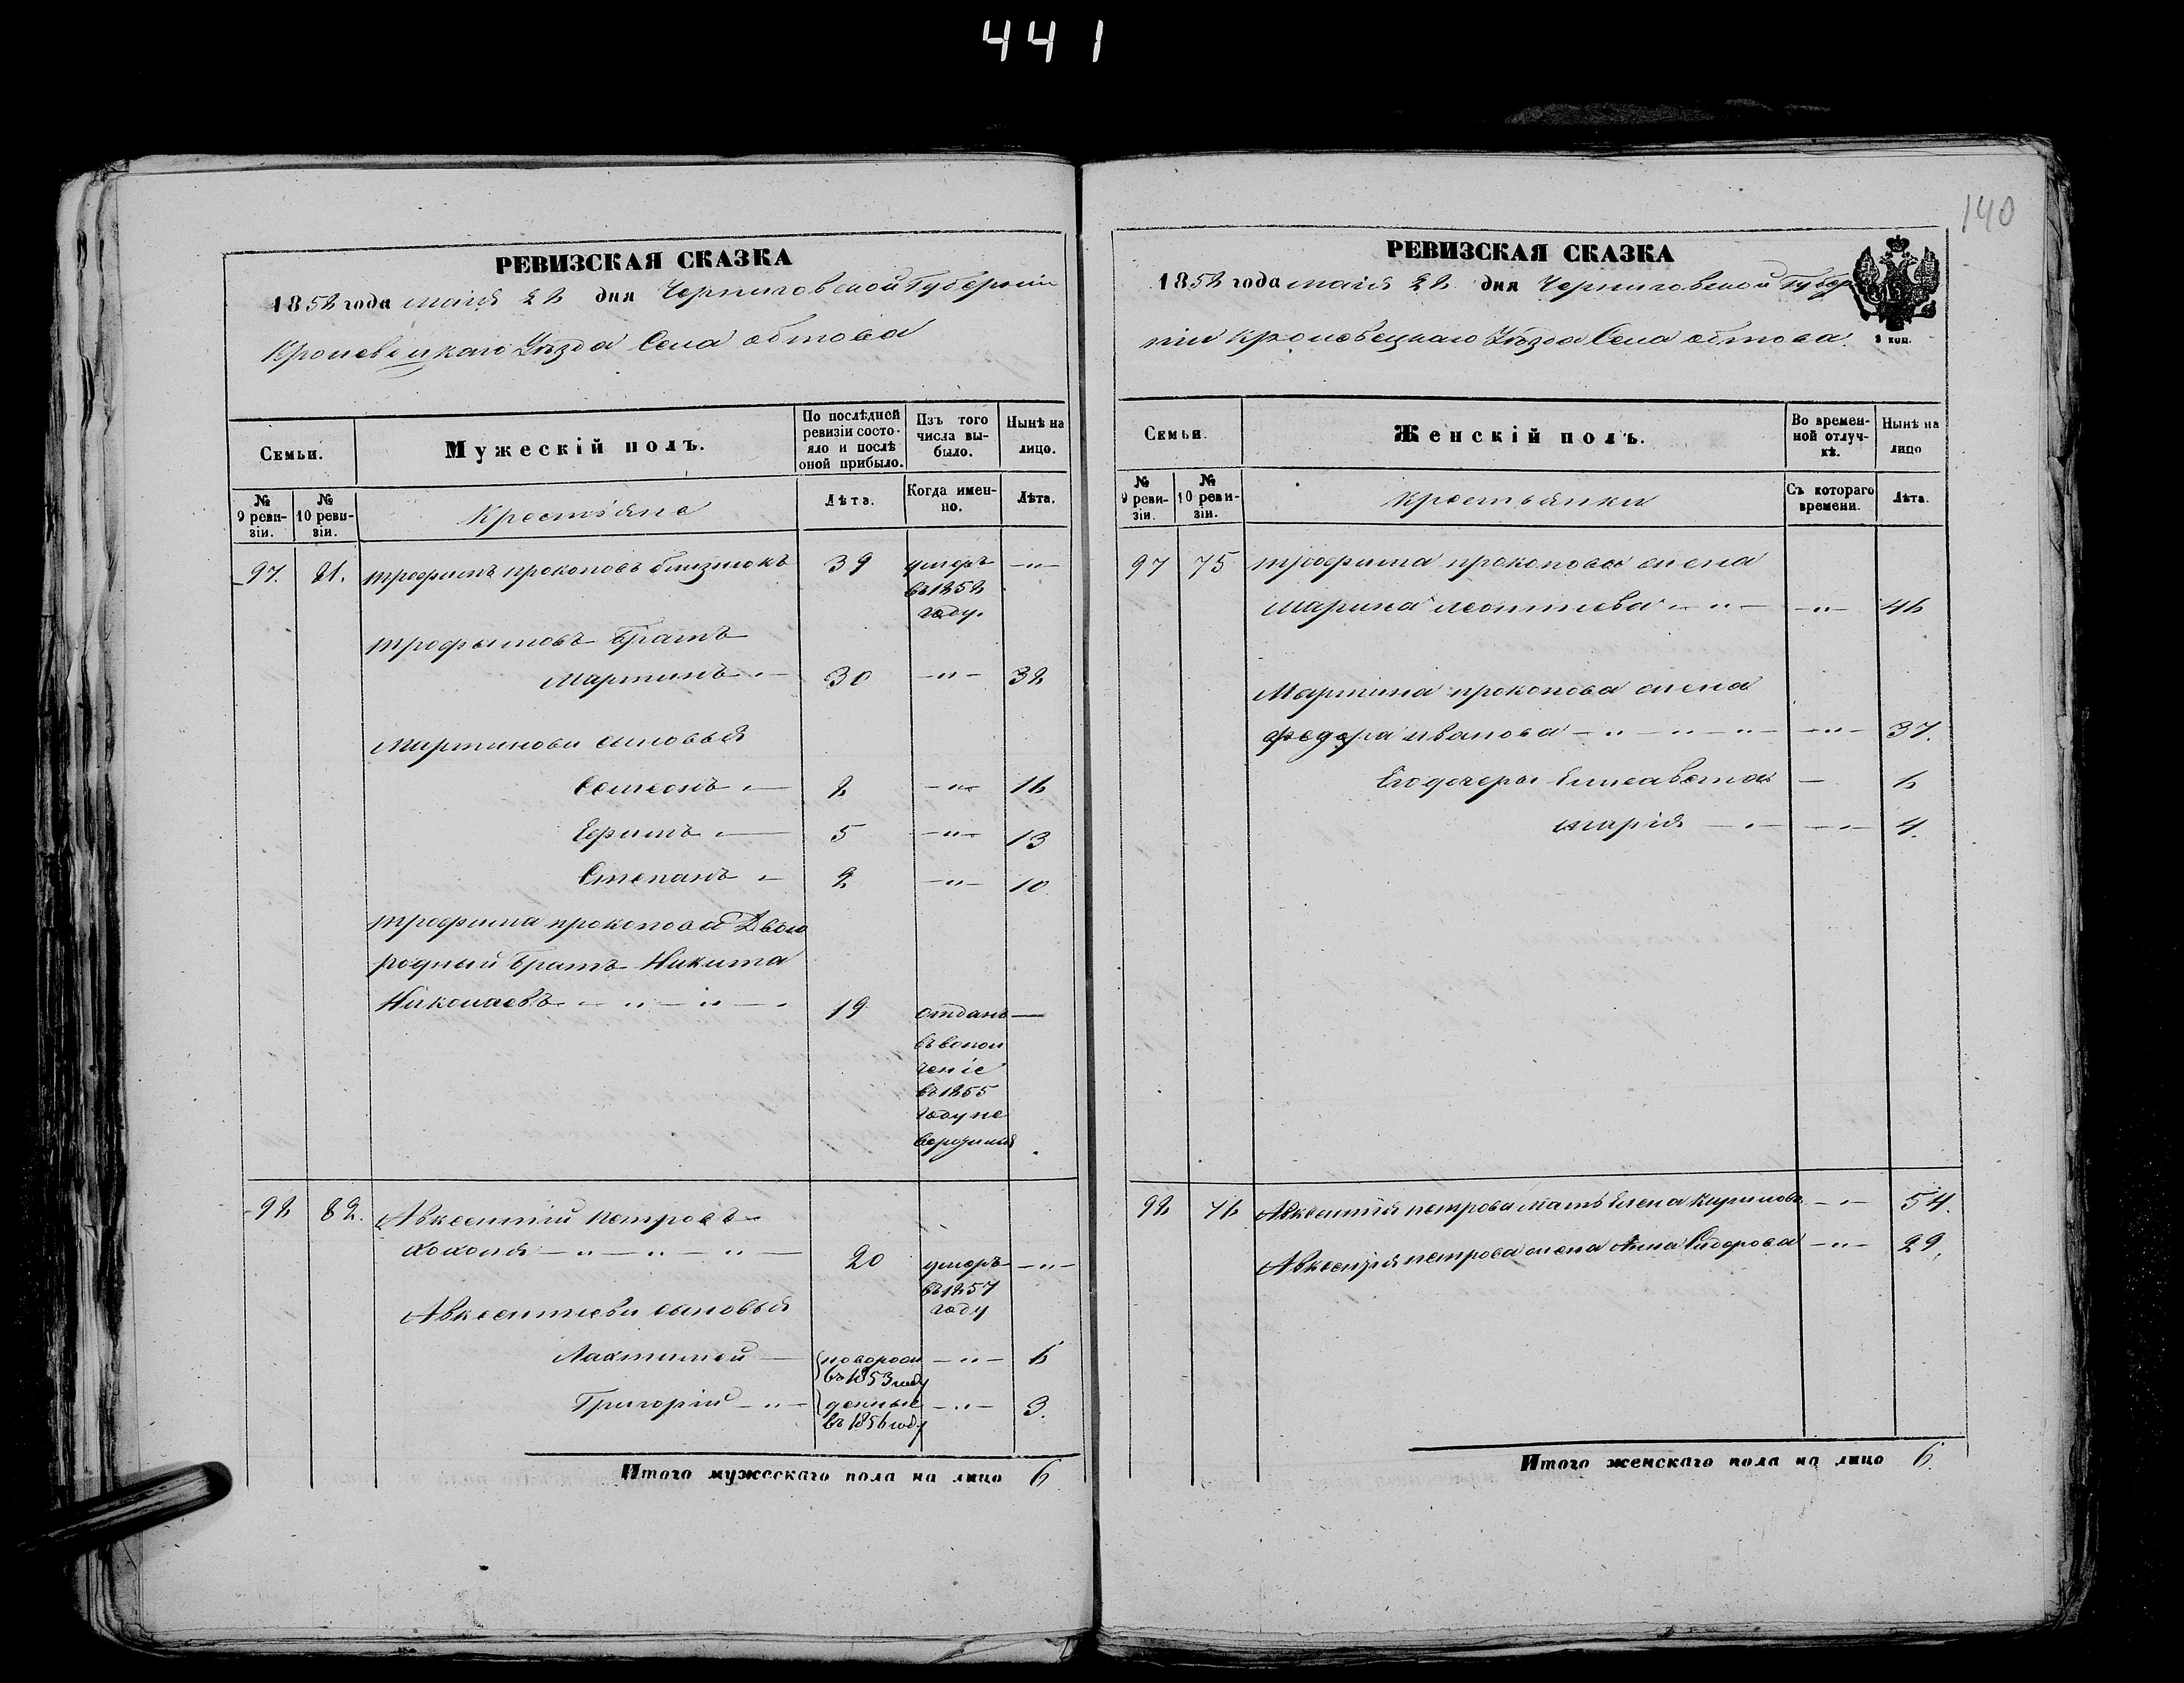 441
140
РЕВИЗСКАЯ СКАЗКА
1858 года маія 28 дня Черниговской Губерніи
Кролевецкаго Уѣзда Села обтова
Семьи.
Мужескій полъ.
По послѣдней ревизіи состояло и послѣ оной прибыло.
Изъ того числа выбыло.
Нынѣ на лицо.
№ 9 ревизіи.
№ 10 ревизіи.
Крестьяне
Лѣта.
Когда именно.
Лѣта.
97. 81. трофимъ прокоповъ близнюкъ 39 умеръ —"—
въ 1852
году.
трофимовъ братъ
Мартинъ — 30 —"— 38
Мартинови сыновья
Семенъ — 8 —"— 16
Ефимъ — 5 —"— 13
Степанъ — 2 —"— 10
трофима прокопова Двою
родный братъ Никита
Николаевъ — " — " — 19 отданъ —
въ ополченіе
въ 1855
году не
98 82. Авксентій петровъ
хохоля — " — " — " — 20 умеръ —"—
въ 1857
году
Авксентіеви сыновья
новорож
въ 1853 году —"— 6
Григорій —"— денные
въ 1856 году —"— 3.
Итого мужескаго пола на лицо 6
РЕВИЗСКАЯ СКАЗКА
1858 года маія 28 дня Черниговской Губер
ніи Кролевецкаго Уѣзда Села обтова.
Семьи.
Женскій полъ.
Во временной отлучкѣ.
Нынѣ на лицо
№ 9 ревизіи.
№ 10 ревизіи.
Крестьянки
Съ котораго времени.
Лѣта.
97 75 трофима прокопова жена
Марина леонтиева — " — —"— 46
Мартина прокопова жена
федора иванова — " — " — " — —"— 37.
Его дочеры Елисавета — 6
марія —"— —"— 4.
98 76 Авксентія петрова мать Елена Кирилова —"— 54.
Авксентія петрова жена Анна Сидорова —"— 29.
Итого женскаго пола на лицо 6.